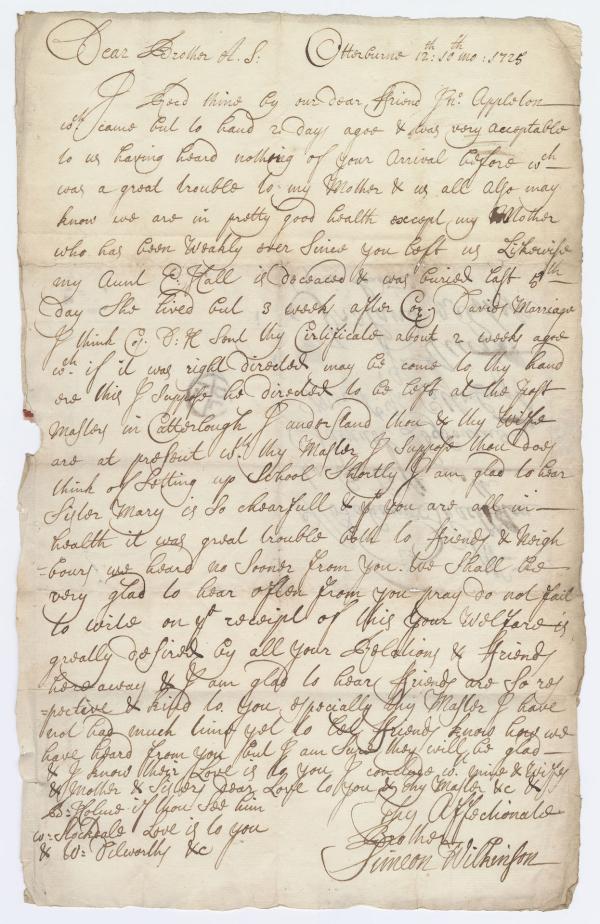 Dear Brother A. S: Otterburne 12th: 10th mo: 1725
I Recd thine by our dear ffriend Jno. Appleton
wch came but to hand 2 days agoe & was very acceptable
to us having heard nothing of your Arrival before wch
was a great trouble to my Mother & us all Also may
know we are in pretty good health except my Mother
who has been Weakly ever Since you left us Likewise
my Aunt E: Hall is deceased & was buried last 5th
day She lived but 3 weeks after Coz: Davids Marriage
I think Coz: D: H Sent thy Certificate about 2 weeks agoe
wch if it was right directed may be come to thy hand
ere this I Suppose he directed to be left at the Post
Masters in Catterlough I understand thou & thy Wiffe
are at present wth thy Master I Suppose thou does
think of Setting up School Shortly I am glad to hear
Sister Mary is So chearfull & if you are all in
health it was great trouble both to ffriends & Neigh
=bours we heard no Sooner from you. we Shall be
very glad to hear often from you pray do not fail
to write on ye receipt of this Your Welfare is
greatly desired by all Your Relations & ffriends
here away & I am glad to hear ffriends are So res
=pective & kind to You, especially thy Master I have
not had much time yet to let ffriends know how we
have heard from you but I am Sure they will be glad
& I know their Love is to you I conclude wth mine & Wiffes
& Mother & Sisters Dear Love to you & thy Master &c &
Holme if you See him
Stockdale Love is to you Thy Affectionate
& W: Dilworths &c Brother
Simeon Wilkinson